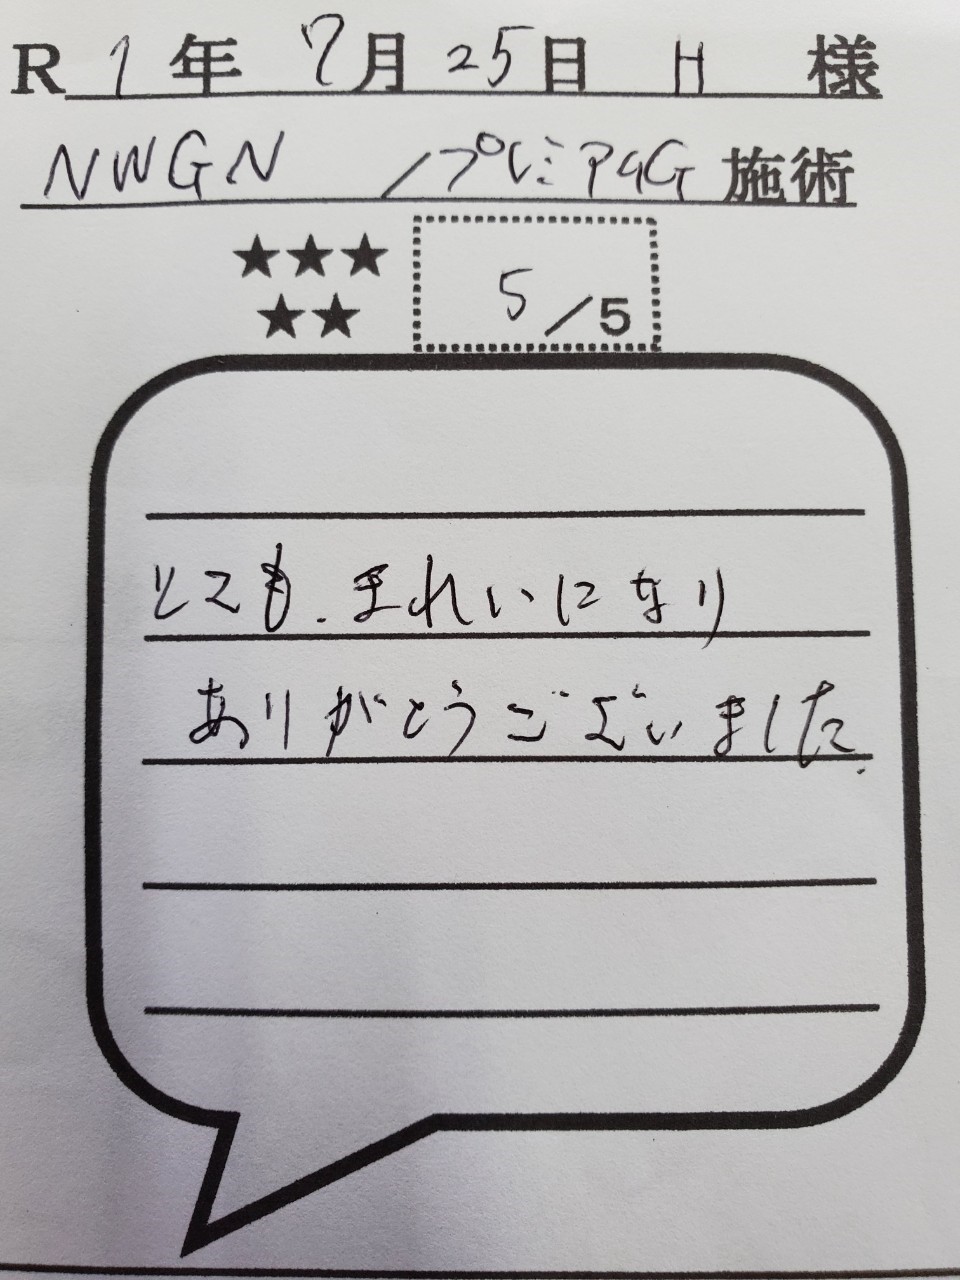 R 1年 7月 25日 H 様
NWGN /プレミアGG 施術
★★★
★★
5/5
とても、きれいになり
ありがとうございました。